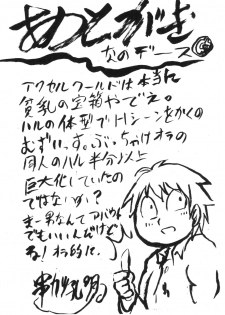 あとがき
なのデース
アクセルワールドは本当に
貧乳の宝箱やでぇ。
ハルの体型でHシーンをかくの
むずいっす。ぶっちゃけオラの
同人のハル半分以上
巨大化していたの
ではないか？
ま…男なんてアバウト
でもいいんだけど
ね！オラ的に。